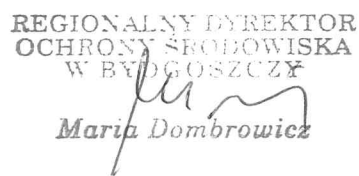 REGIONALNY DYREKTOR
OCHRONY ŚRODOWISKA
W BYDGOSZCZY
Maria Dombrowicz